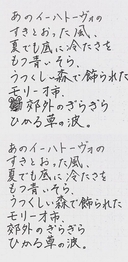 あのイーハトーヴォの
すきとおった風、
夏でも底に冷たさを
もつ青いそら、
うつくしい森で飾られた
モリーオ市、
郊外のぎらぎら
ひかる草の波。
あのイーハトーヴォの
すきとおった風、
夏でも底に冷たさを
もつ青いそら、
うつくしい森で飾られた
モリーオ市、
郊外のぎらぎら
ひかる草の波。